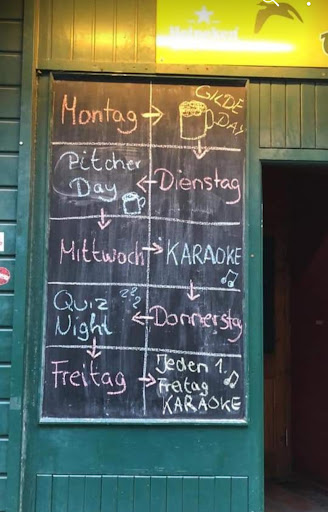 Heineken
Montag → GILDE
DAY
Pitcher
Day ← Dienstag
Mittwoch → KARAOKE
Quiz ???
Night ← Donnerstag
Freitag → Jeden 1.
Freitag
KARAOKE